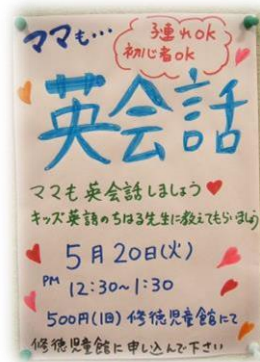 ママも…
子連れOK
初心者OK
英会話
ママも英会話しましょう♥
キッズ英語のちはる先生に教えてもらいましょう
5月20日(火)
PM 12:30~1:30
500円(1回) 修徳児童館にて
修徳児童館に申し込んで下さい